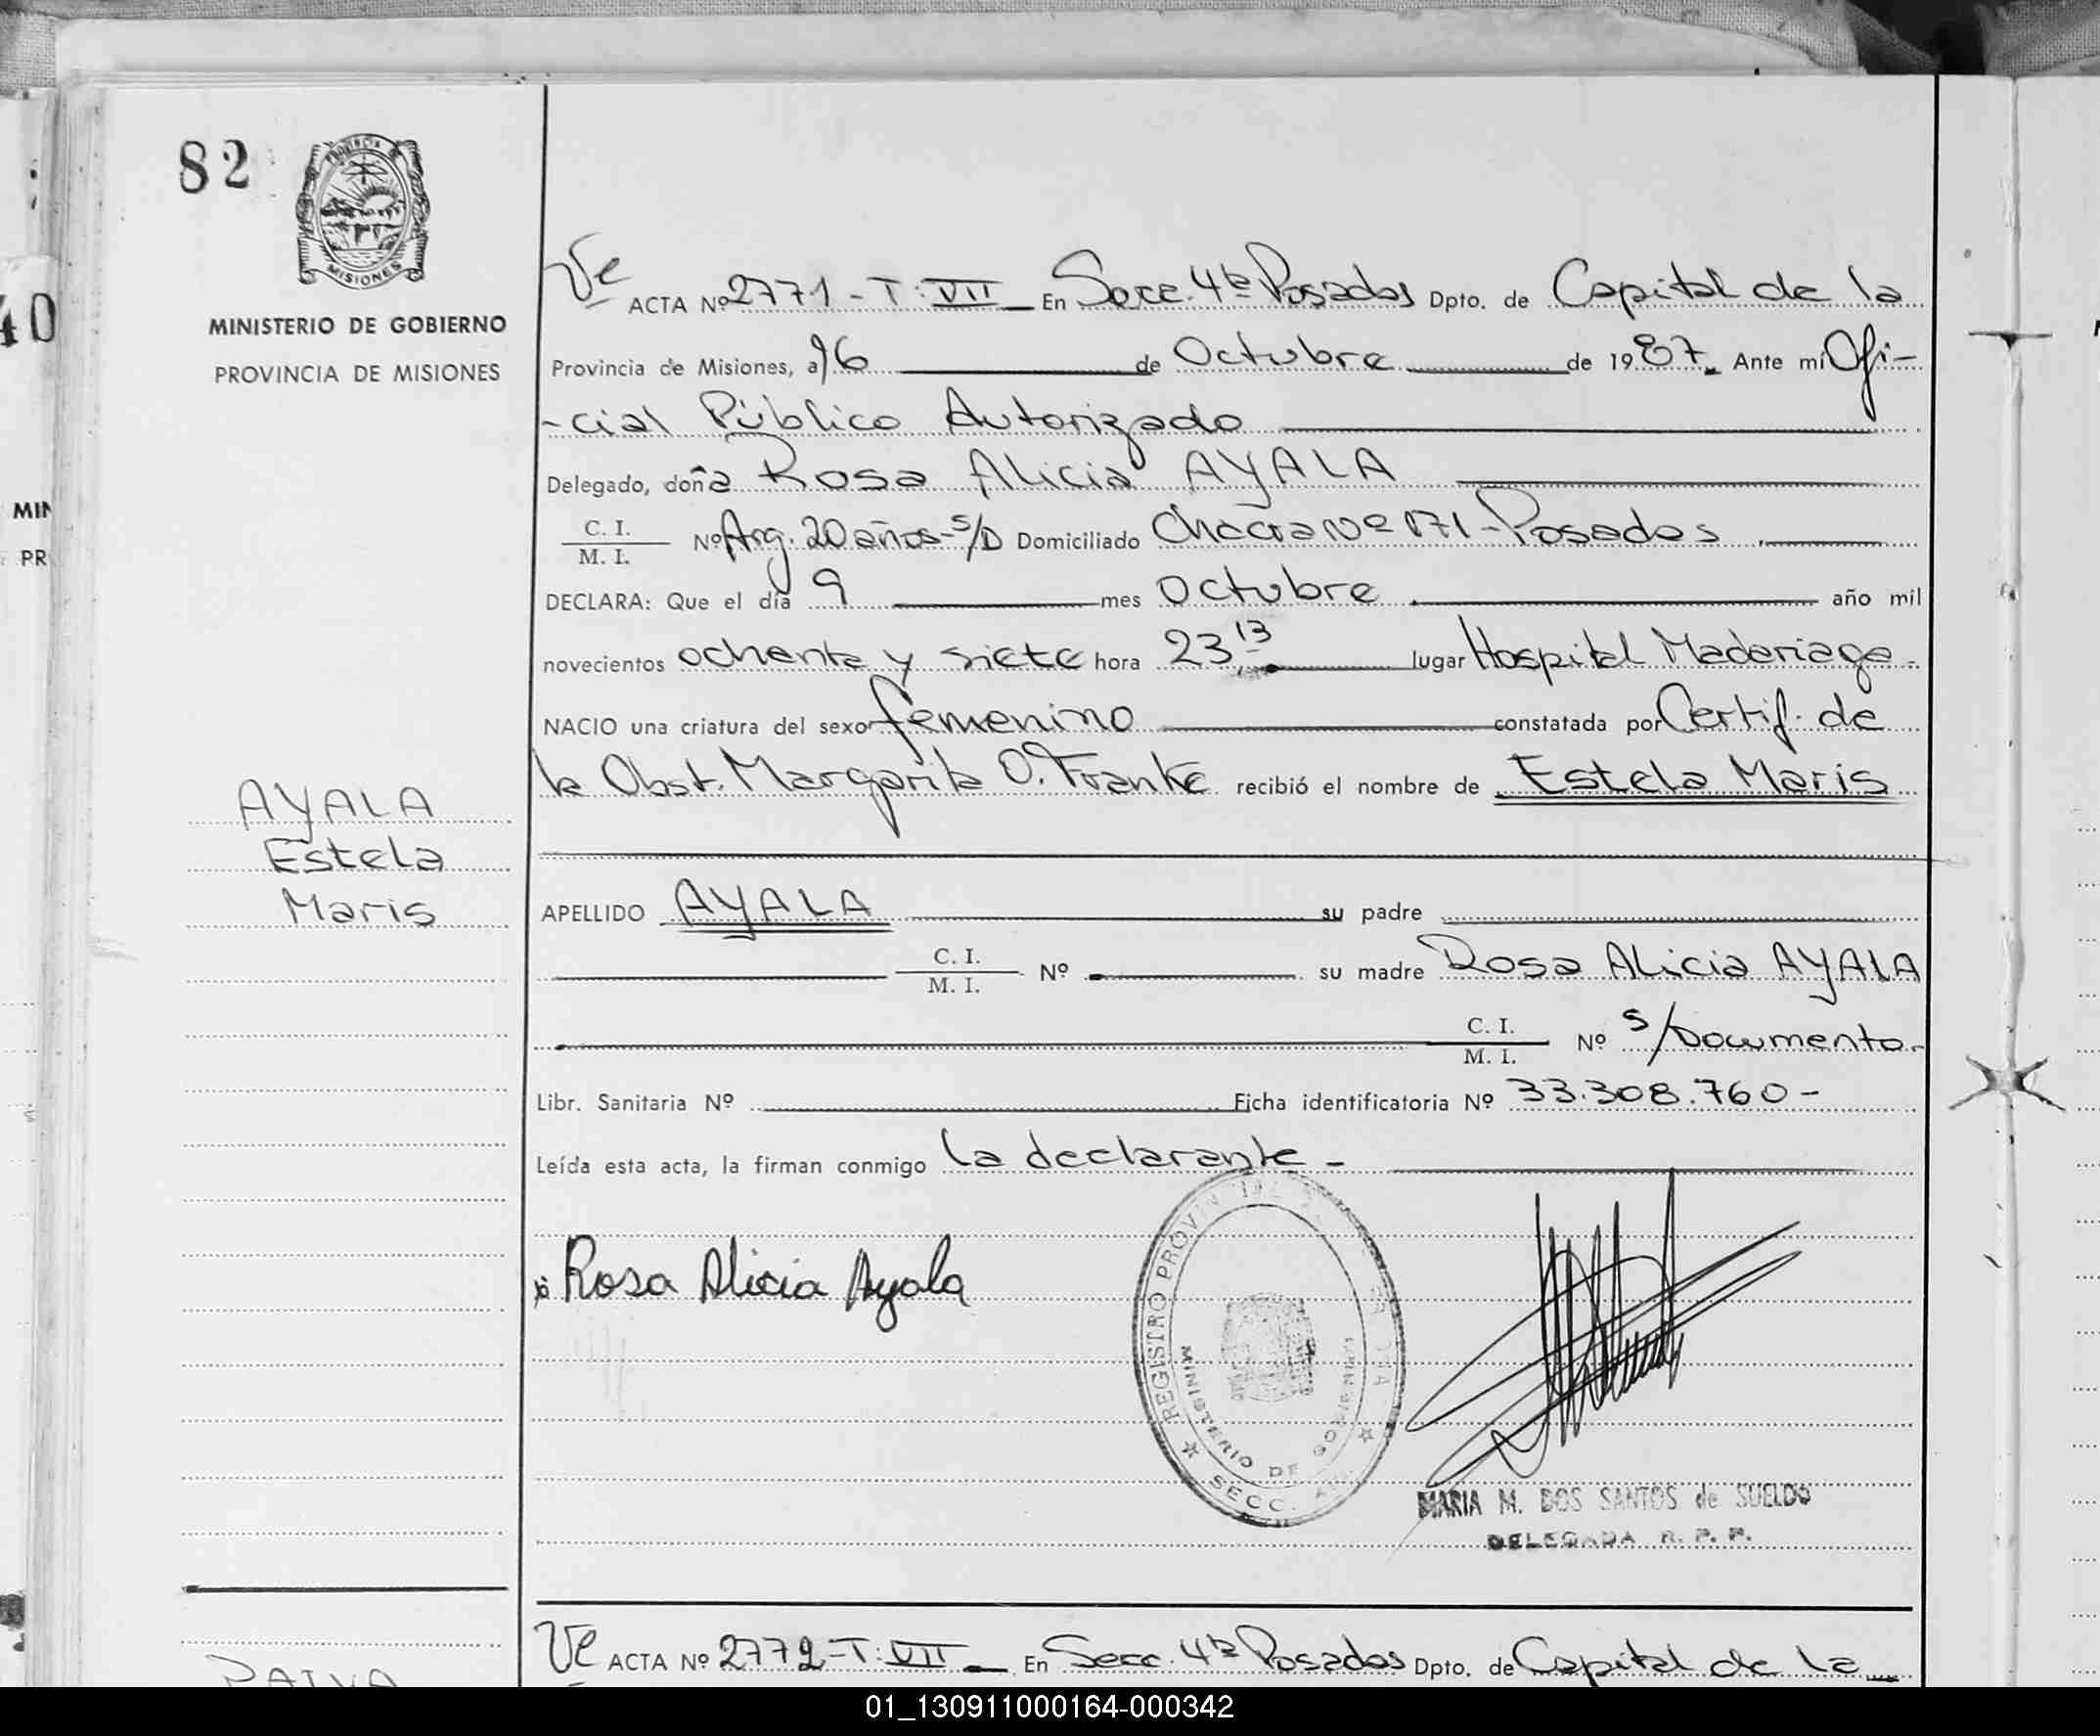 82
PROVINCIA DE
MISIONES
MINISTERIO DE GOBIERNO
PROVINCIA DE MISIONES
AYALA
Estela
Maris
Ve ACTA Nº 2771-T:VII En Secc. 4ta Posadas Dpto. de Capital de la
Provincia de Misiones, a 16 de Octubre de 1987. Ante mí Ofi-
-cial Público Autorizado
Delegado, doña Rosa Alicia AYALA
C. I.
M. I. Nº Arg. 20 años-S/D Domiciliado Chacra Nº 171-Posadas
DECLARA: Que el día 9 mes Octubre año mil
novecientos ochenta y siete hora 23,13 lugar Hospital Madariaga-
NACIO una criatura del sexo femenino constatada por Certif. de
la Obst. Margarita O. Franke recibió el nombre de Estela Maris
APELLIDO AYALA su padre
C. I.
M. I. Nº su madre Rosa Alicia AYALA
C. I.
M. I. Nº S/Documento-
Libr. Sanitaria Nº Ficha identificatoria Nº 33.308.760-
Leída esta acta, la firman conmigo la declarante-
Rosa Alicia Ayala
REGISTRO PROVIN
MINISTERIO DE GOBIERNO
SECC.
MARIA M. DOS SANTOS de SUELDO
DELEGADA R. P. P.
Ve ACTA Nº 2772-T:VII En Secc. 4ta Posadas Dpto. de Capital de la
40
MIN
PR
01_130911000164-000342